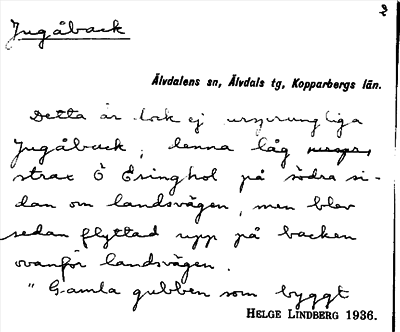 2
Jugåback
Älvdalens sn, Älvdals tg, Kopparbergs län.
Detta är dock ej ursprungliga
Jugåback, denna låg
strax Ö Esinghol på södra si-
dan om landsvägen, men blev
sedan flyttad upp på backen
ovanför landsvägen.
"Gamla gubben som byggt
HELGE LINDBERG 1936.